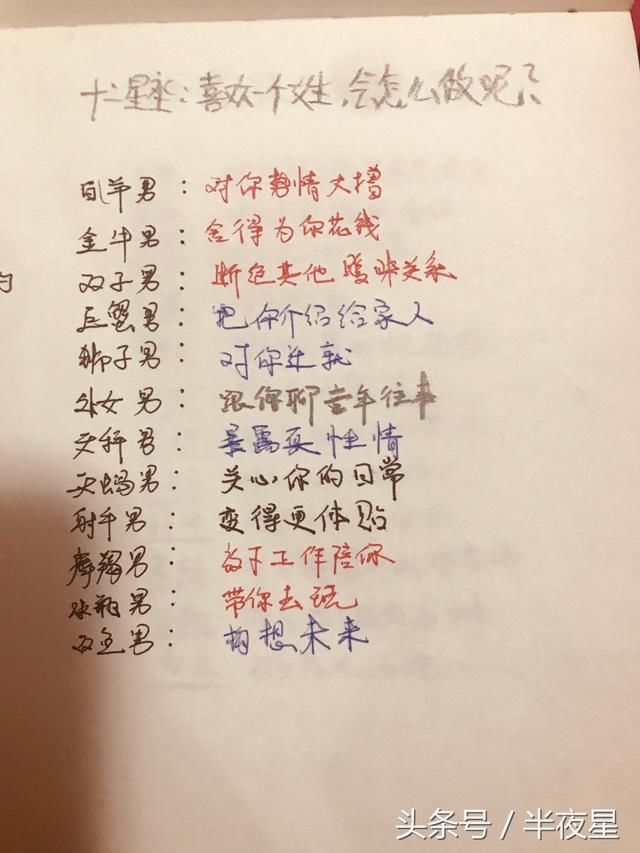 十二星座：喜欢一个女生，会怎么做呢？
白羊男：对你热情大增
金牛男：舍得为你花钱
的
双子男：断绝其他暧昧关系
巨蟹男：把你介绍给家人
狮子男：对你迁就
处女男：跟你聊童年往事
天秤男：暴露真性情
天蝎男：关心你的日常
射手男：变得更体贴
摩羯男：放下工作陪你
水瓶男：带你去玩
双鱼男：构想未来
头条号 / 半夜星